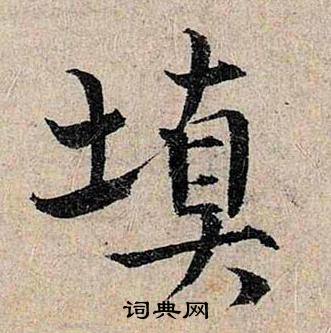 填
词典网